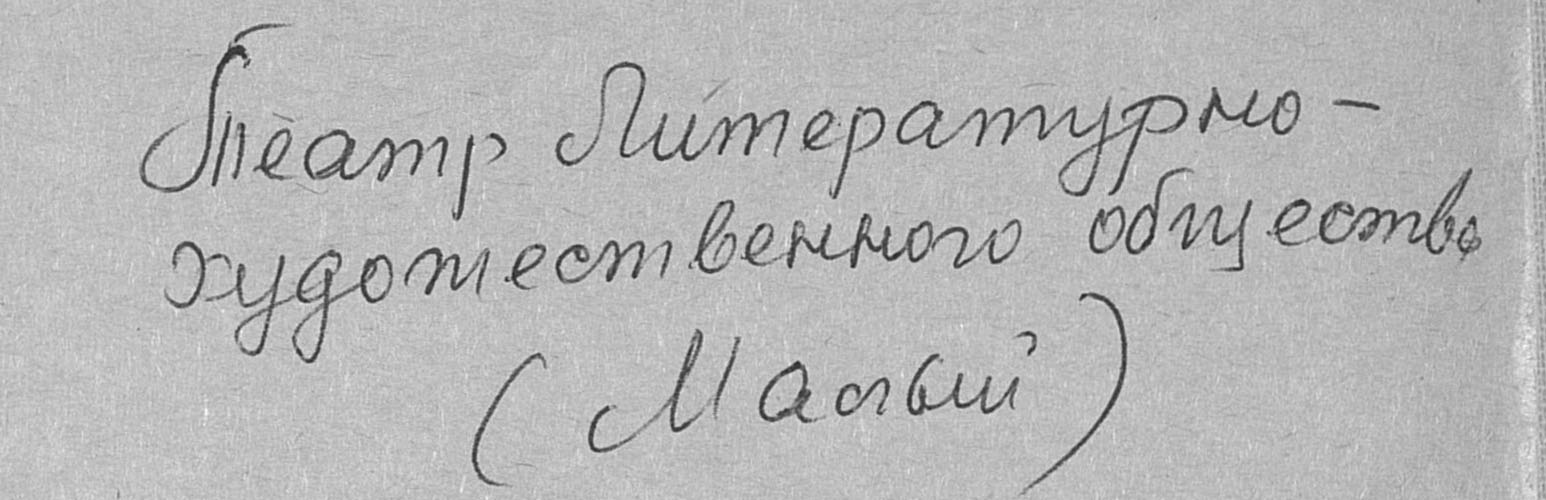 Театр Литературно-
художественного общества
(Малый)